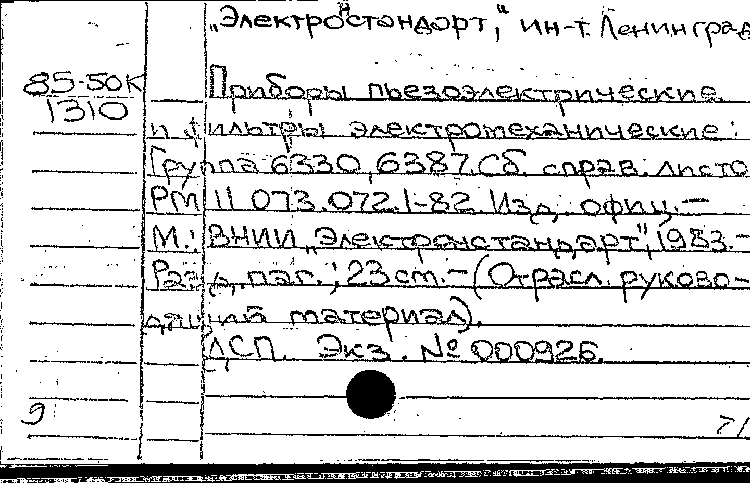 „Электростандарт," ин-т. Ленинград
85-50к Приборы пьезоэлектрические
1310
и фильтры электромеханические:
Группа 6330, 6387. Сб. справ. листо
РМ 11 073.072.1-82. Изд. офиц. –
М.: ВНИИ „Электронстандарт", 1983. –
Разд. паг.; 23 cm. – (Отрасл. руково-
дящий материал).
ДСП. Экз. № 000926.
9 71